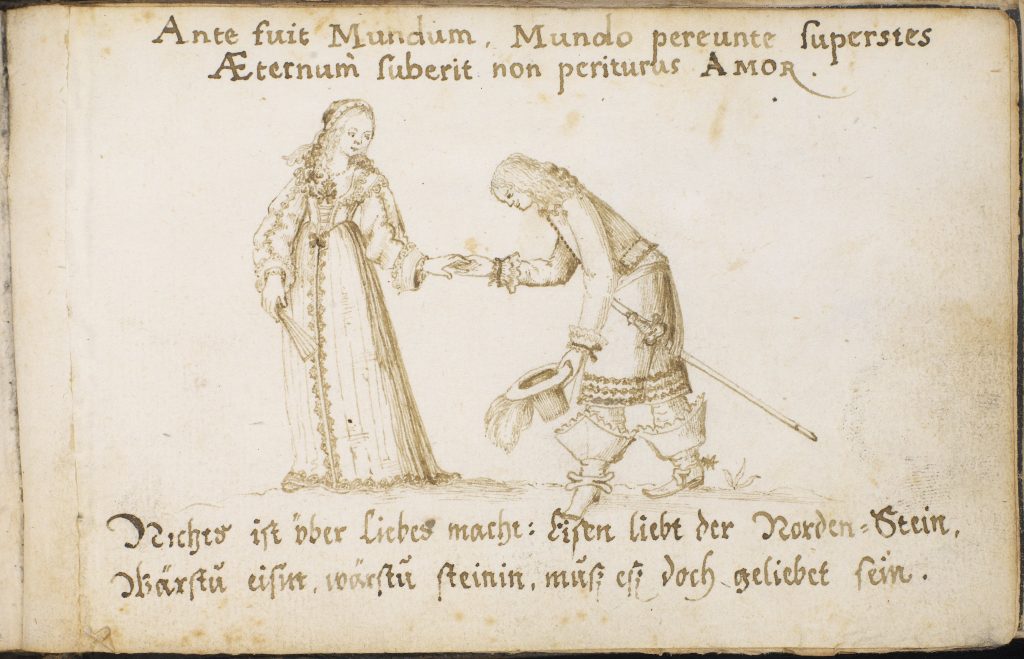 Ante fuit Mundum, Mundo pereunte superstes
Æternum̀ suberit non periturus AMOR.
Nichts ist über Liebes macht: Eisen liebt der Norden-Stein,
Wärstu eisin, wärstu steinin, muß eß doch geliebet sein.